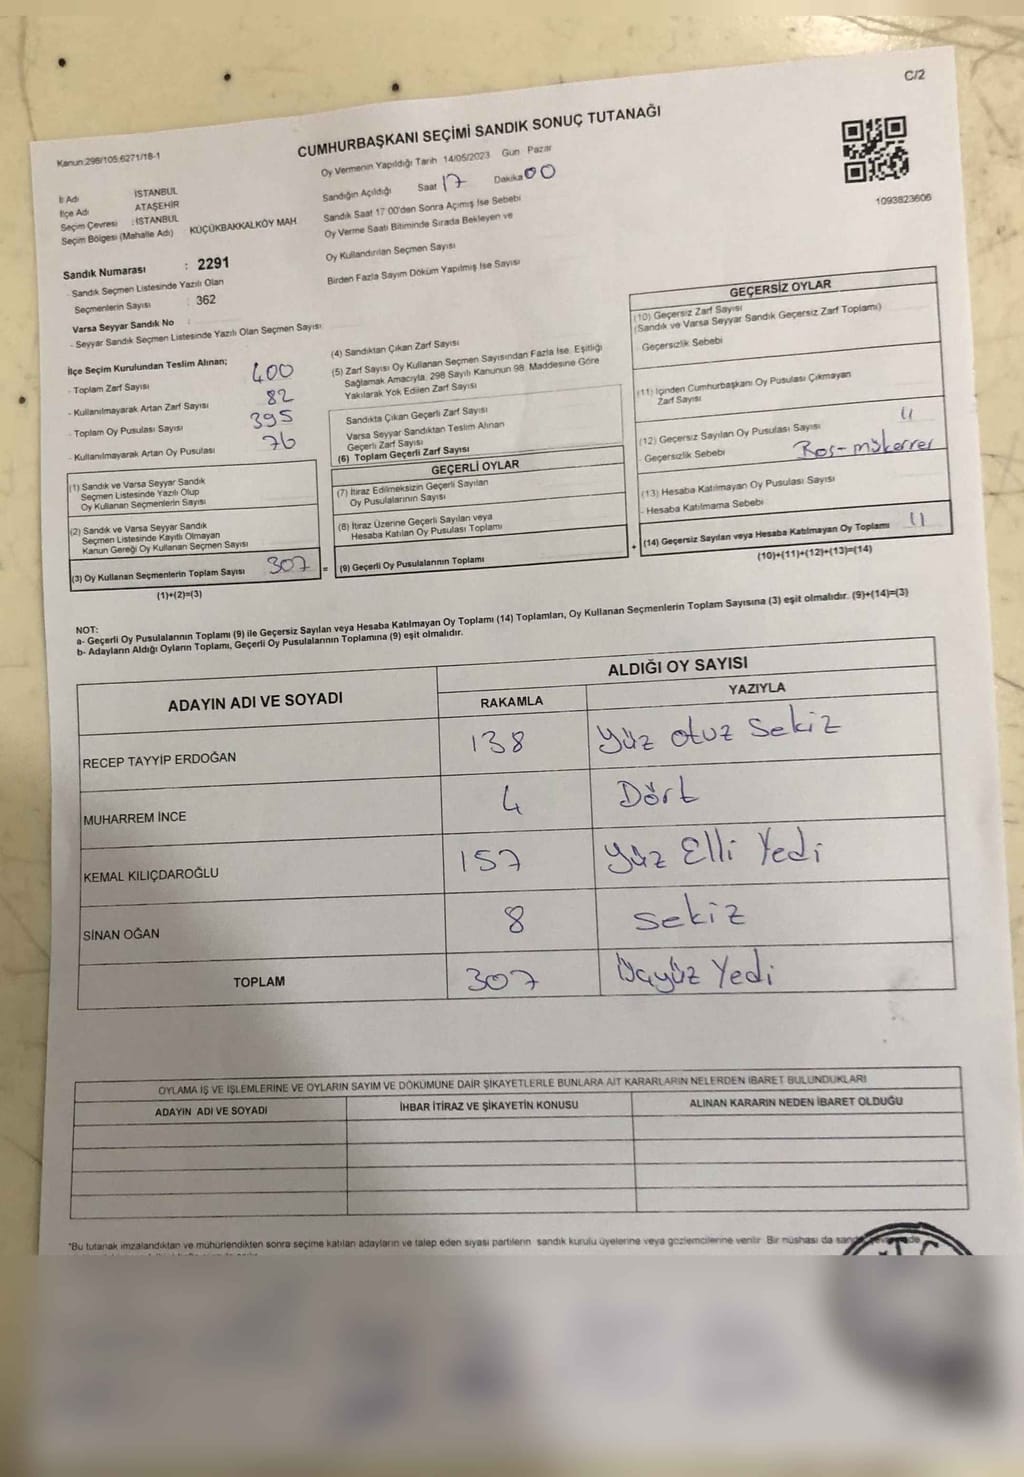 C/2
CUMHURBAŞKANI SEÇİMİ SANDIK SONUÇ TUTANAĞI
Kanun:298/105:6271/18-1
Oy Vermenin Yapıldığı Tarih 14/05/2023 Gün Pazar
İl Adı İSTANBUL
İlçe Adı ATAŞEHİR
Seçim Çevresi : İSTANBUL
Seçim Bölgesi (Mahalle Adı) : KÜÇÜKBAKKALKÖY MAH
Sandığın Açıldığı Saat 17 Dakika 00
Sandık Saat 17 00'den Sonra Açımış İse Sebebi
Oy Verme Saati Bitiminde Sırada Bekleyen ve
Oy Kullandırılan Seçmen Sayısı
Birden Fazla Sayım Döküm Yapılmış İse Sayısı
1093823606
Sandık Numarası : 2291
- Sandık Seçmen Listesinde Yazılı Olan
Seçmenlerin Sayısı : 362
Varsa Seyyar Sandık No :
- Seyyar Sandık Seçmen Listesinde Yazılı Olan Seçmen Sayısı
İlçe Seçim Kurulundan Teslim Alınan;
- Toplam Zarf Sayısı 400
- Kullanılmayarak Artan Zarf Sayısı 82
- Toplam Oy Pusulası Sayısı 395
- Kullanılmayarak Artan Oy Pusulası 76
(1) Sandık ve Varsa Seyyar Sandık
Seçmen Listesinde Yazılı Olup
Oy Kullanan Seçmenlerin Sayısı
(2) Sandık ve Varsa Seyyar Sandık
Seçmen Listesinde Kayıtlı Olmayan
Kanun Gereği Oy Kullanan Seçmen Sayısı
(3) Oy Kullanan Seçmenlerin Toplam Sayısı 307 =
(1)+(2)=(3)
(4) Sandıktan Çıkan Zarf Sayısı
(5) Zarf Sayısı Oy Kullanan Seçmen Sayısından Fazla İse, Eşitliği
Sağlamak Amacıyla, 298 Sayılı Kanunun 98. Maddesine Göre
Yakılarak Yok Edilen Zarf Sayısı
Sandıkta Çıkan Geçerli Zarf Sayısı
Varsa Seyyar Sandıktan Teslim Alınan
Geçerli Zarf Sayısı
(6) Toplam Geçerli Zarf Sayısı
GEÇERLİ OYLAR
(7) İtiraz Edilmeksizin Geçerli Sayılan
Oy Pusulalarının Sayısı
(8) İtiraz Üzerine Geçerli Sayılan veya
Hesaba Katılan Oy Pusulası Toplamı
(9) Geçerli Oy Pusulalarının Toplamı +
GEÇERSİZ OYLAR
(10) Geçersiz Zarf Sayısı
(Sandık ve Varsa Seyyar Sandık Geçersiz Zarf Toplamı)
- Geçersizlik Sebebi
(11) İçinden Cumhurbaşkanı Oy Pusulası Çıkmayan
Zarf Sayısı
(12) Geçersiz Sayılan Oy Pusulası Sayısı 11
- Geçersizlik Sebebi Boş-mükerrer
(13) Hesaba Katılmayan Oy Pusulası Sayısı
- Hesaba Katılmama Sebebi
(14) Geçersiz Sayılan veya Hesaba Katılmayan Oy Toplamı 11
(10)+(11)+(12)+(13)=(14)
NOT:
a- Geçerli Oy Pusulalarının Toplamı (9) ile Geçersiz Sayılan veya Hesaba Katılmayan Oy Toplamı (14) Toplamları, Oy Kullanan Seçmenlerin Toplam Sayısına (3) eşit olmalıdır. (9)+(14)=(3)
b- Adayların Aldığı Oyların Toplamı, Geçerli Oy Pusulalarının Toplamına (9) eşit olmalıdır.
ADAYIN ADI VE SOYADI
ALDIĞI OY SAYISI
RAKAMLA YAZIYLA
RECEP TAYYİP ERDOĞAN 138 Yüz otuz Sekiz
MUHARREM İNCE 4 Dört
KEMAL KILIÇDAROĞLU 157 Yüz Elli Yedi
SİNAN OĞAN 8 sekiz
TOPLAM 307 Üçyüz Yedi
OYLAMA İŞ VE İŞLEMLERİNE VE OYLARIN SAYIM VE DÖKÜMÜNE DAİR ŞİKAYETLERLE BUNLARA AİT KARARLARIN NELERDEN İBARET BULUNDUKLARI
ADAYIN ADI VE SOYADI İHBAR İTİRAZ VE ŞİKAYETİN KONUSU ALINAN KARARIN NEDEN İBARET OLDUĞU
*Bu tutanak imzalandıktan ve mühürlendikten sonra seçime katılan adayların ve talep eden siyasi partilerin sandık kurulu üyelerine veya gözlemcilerine verilir. Bir nüshası da
T.C.